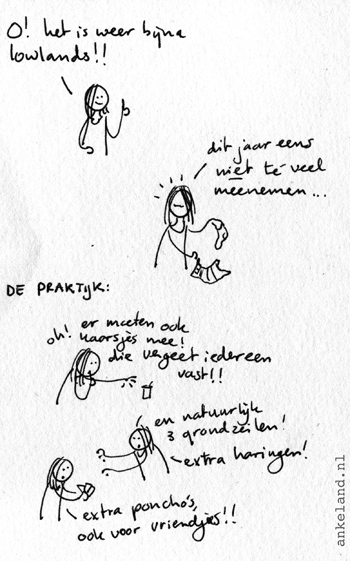 O! het is weer bijna
lowlands!!
dit jaar eens
niet té veel
meenemen...
DE PRAKTIJK:
er moeten ook
oh! kaarsjes mee!
die vergeet iedereen
vast!!
en natuurlijk
3 grondzeilen!
extra haringen!
extra poncho's,
ook voor vriendjes!!
ankeland.nl